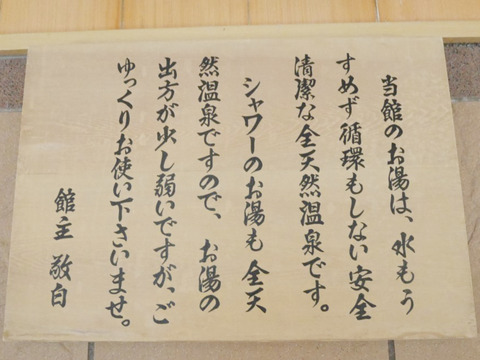 当館のお湯は、水もう
すめず循環もしない安全
清潔な全天然温泉です。
シャワーのお湯も全天
然温泉ですので、お湯の
出方が少し弱いですが、ご
ゆっくりお使い下さいませ。
館主 敬白